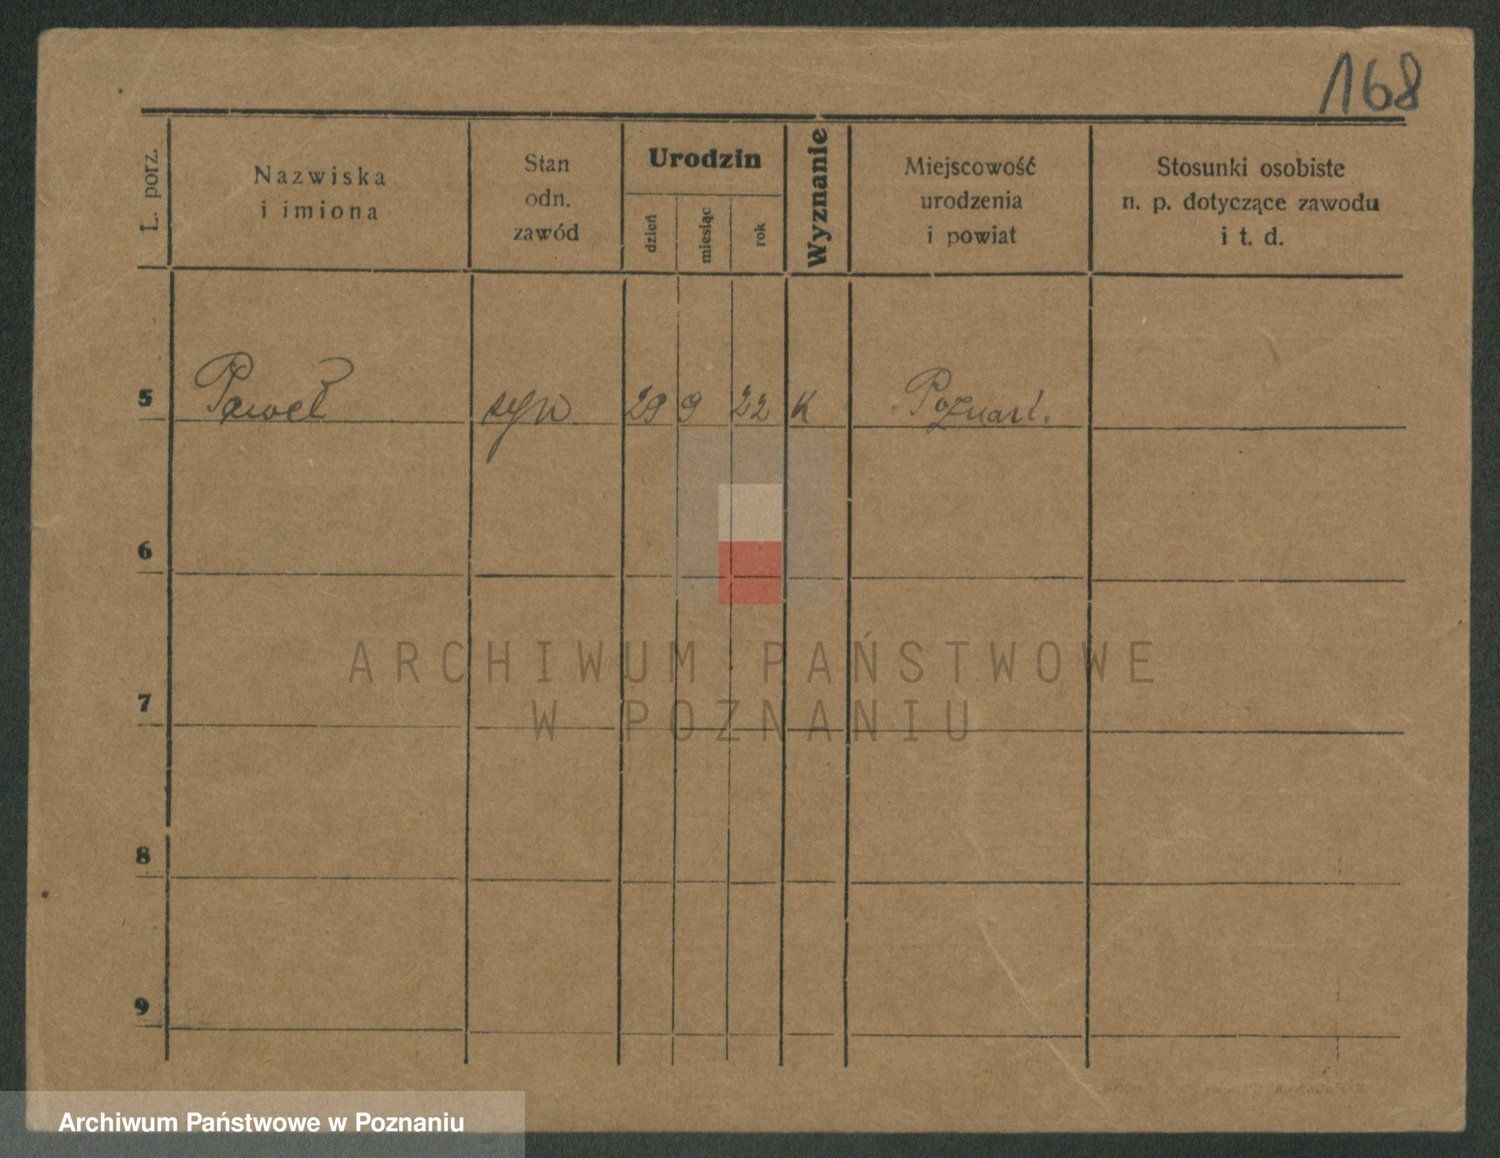 168
L. porz.
Nazwiska
i imiona
Stan
odn.
zawód
Urodzin
dzień
miesiąc
rok
Wyznanie
Miejscowość
urodzenia
i powiat
Stosunki osobiste
n. p. dotyczące zawodu
i t. d.
5 Paweł syn 29 9 22 K Poznań.
6
ARCHIWUM PAŃSTWOWE
W POZNANIU
7
8
9
Archiwum Państwowe w Poznaniu